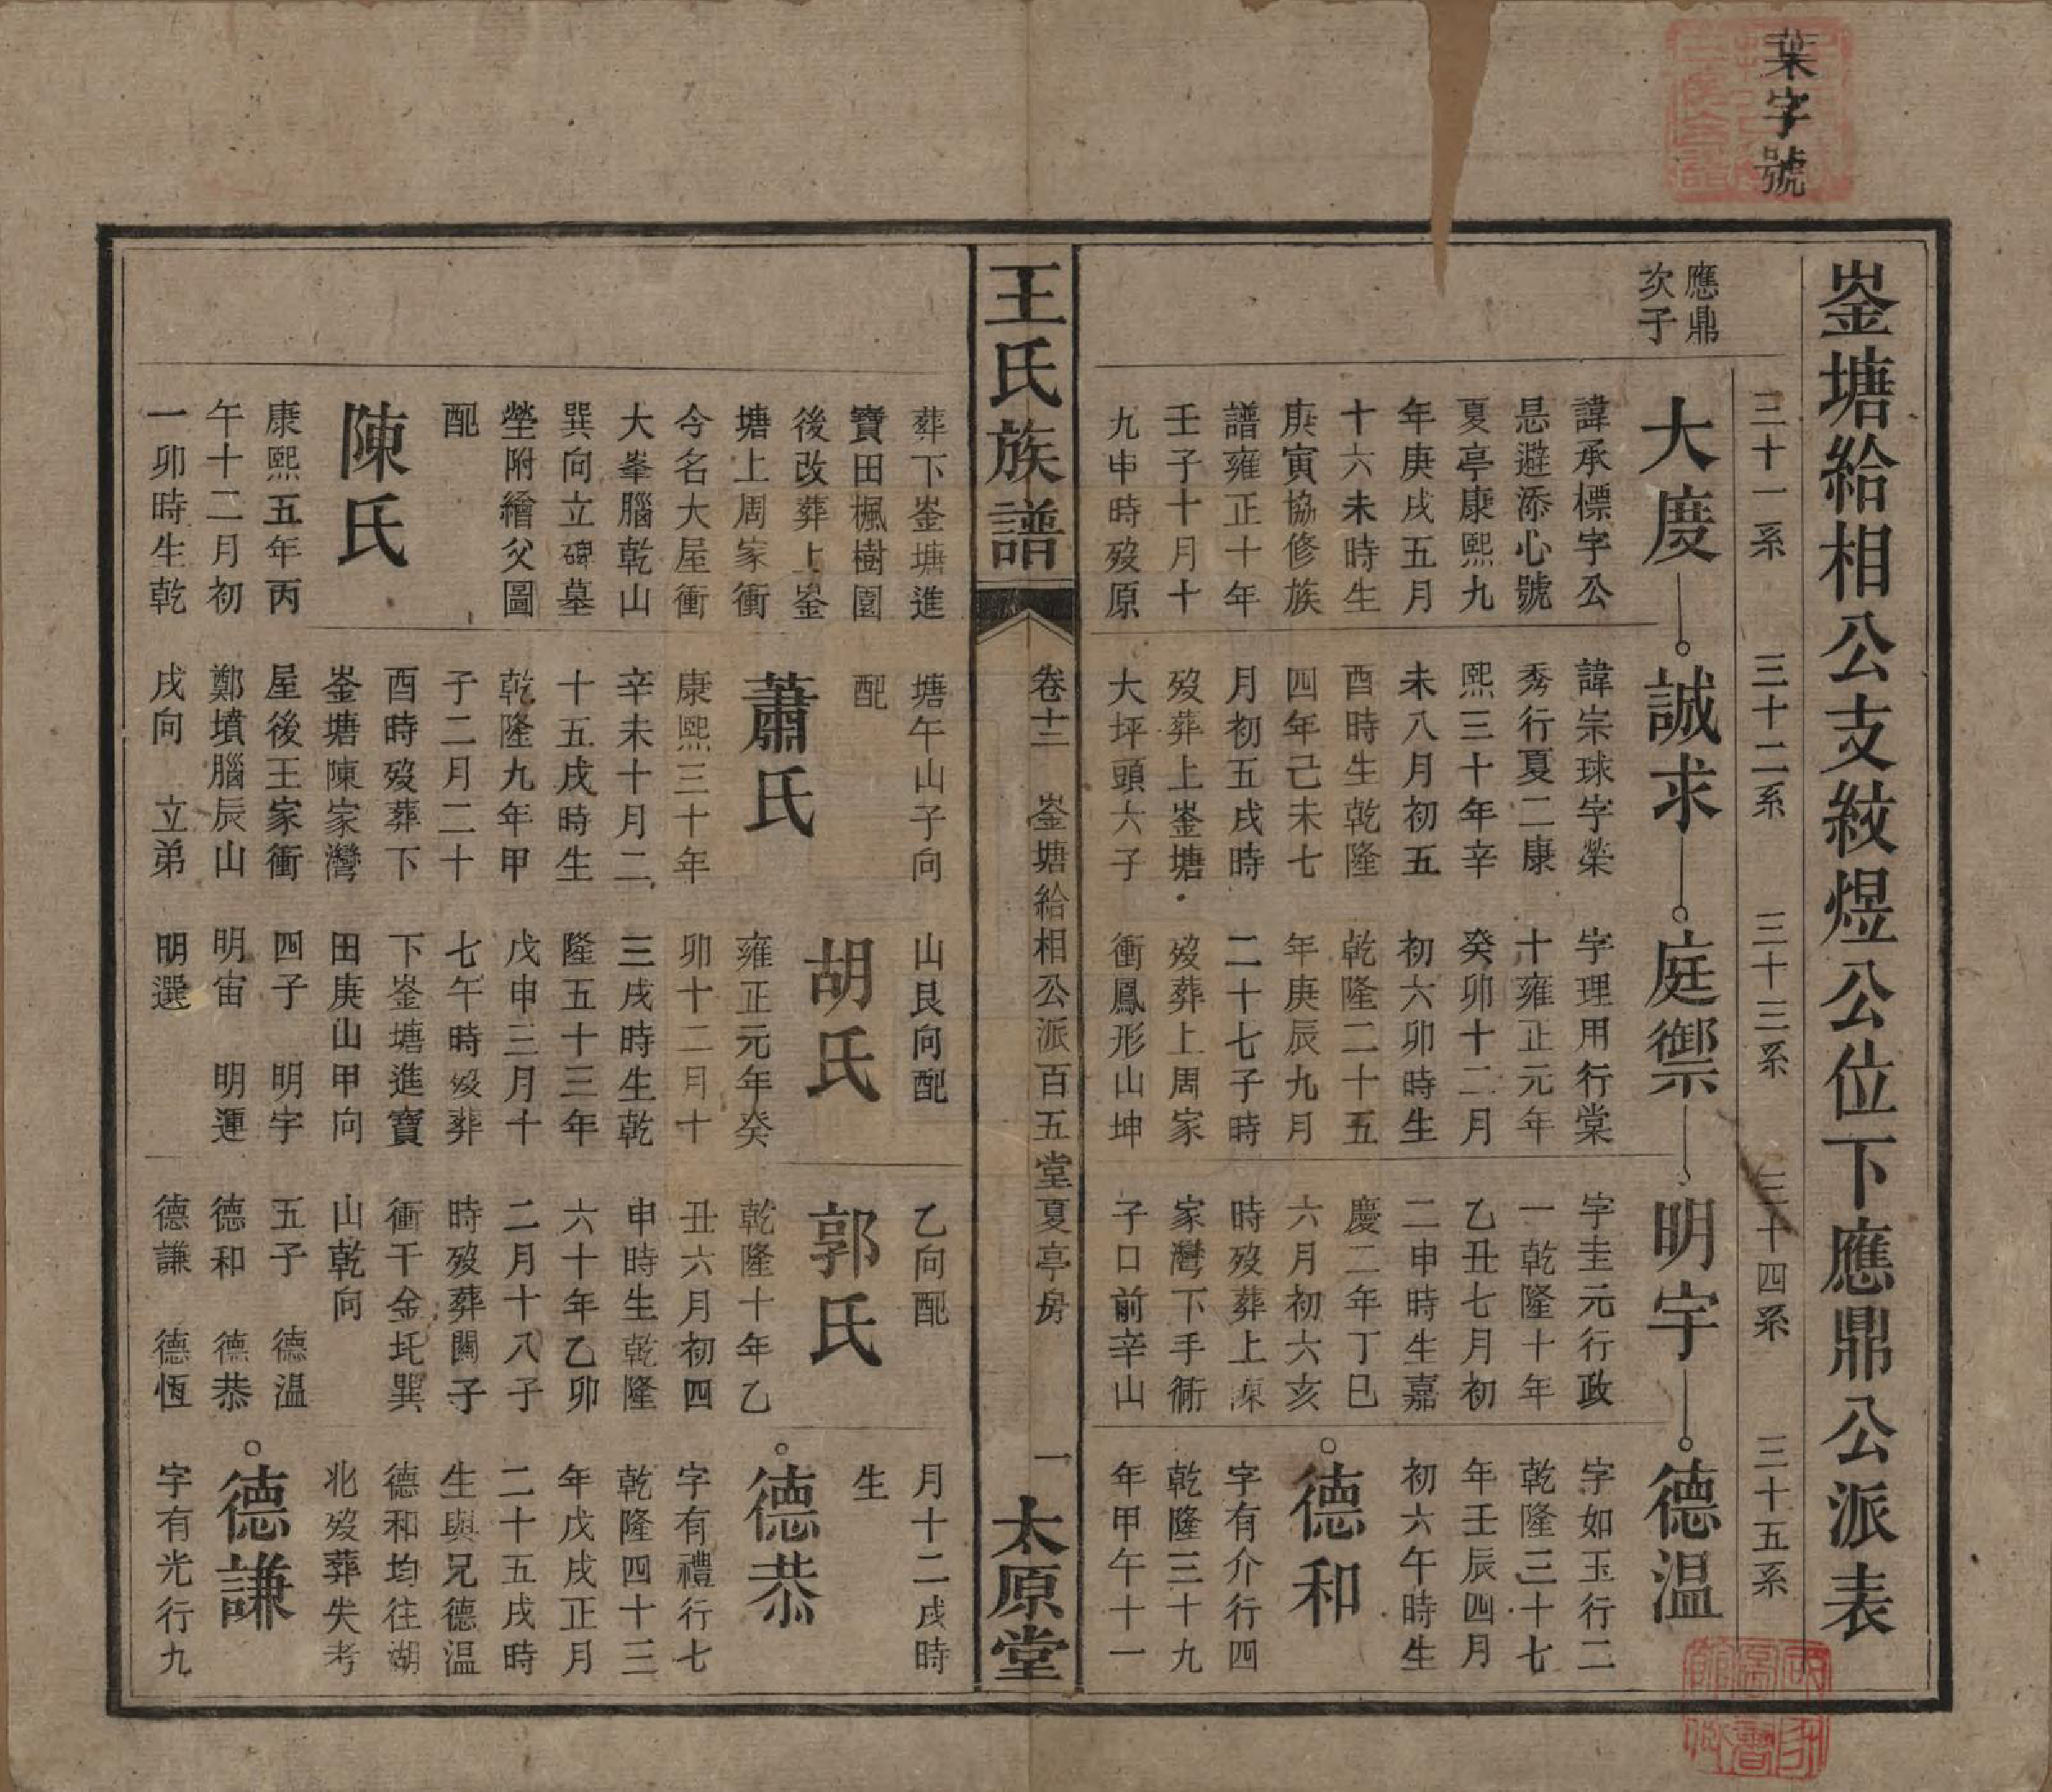 葉字號
崟塘給相公支紋煜公位下應鼎公派表
三十一系
三十二系
三十三系
三十四系
三十五系
應鼎
次子
大度
諱承標字公
恳避添心號
夏亭康熙九
年庚戌五月
十六未時生
庚寅協修族
譜雍正十年
壬子十月十
九申時歿原
葬下崟塘進
寶田楓樹園
後改葬上崟
塘上周家衝
今名大屋衝
大峯腦乾山
巽向立碑墓
塋附繪父圖
配
陳氏
康熙五年丙
午十二月初
一卯時生乾
誠求
諱宗球字榮
秀行夏二康
熙三十年辛
未八月初五
酉時生乾隆
四年己未七
月初五戌時
歿葬上崟塘
大坪頭六子
塘午山子向
配
蕭氏
康熙三十年
辛未十月二
十五戌時生
乾隆九年甲
子二月二十
酉時歿葬下
崟塘陳家灣
屋後王家衝
鄭墳腦辰山
戌向 立弟
庭禦
字理用行棠
十雍正元年
癸卯十二月
初六卯時生
乾隆二十五
年庚辰九月
二十七子時
歿葬上周家
衝鳳形山坤
山艮向配
胡氏
雍正元年癸
卯十二月十
三戌時生乾
隆五十三年
戊申三月十
七午時歿葬
下崟塘進寶
田庚山甲向
四子 明宇
明宙 明運
明選
明宇
字圭元行政
一乾隆十年
乙丑七月初
二申時生嘉
慶二年丁巳
六月初六亥
時歿葬上陳
家灣下手衕
子口前辛山
乙向配
郭氏
乾隆十年乙
丑六月初四
申時生乾隆
六十年乙卯
二月十八子
時歿葬闗子
衝干金圫巽
山乾向
五子 德温
德和 德恭
德謙 德恆
德温
字如玉行二
乾隆三十七
年壬辰四月
初六午時生
德和
字有介行四
乾隆三十九
年甲午十一
月十二戌時
生
德恭
字有禮行七
乾隆四十三
年戊戌正月
二十五戌時
生與兄德温
德和均往湖
北歿葬失考
德謙
字有光行九
王氏族譜
卷十二 崟塘給相公派百五堂夏亭房
一
太原堂